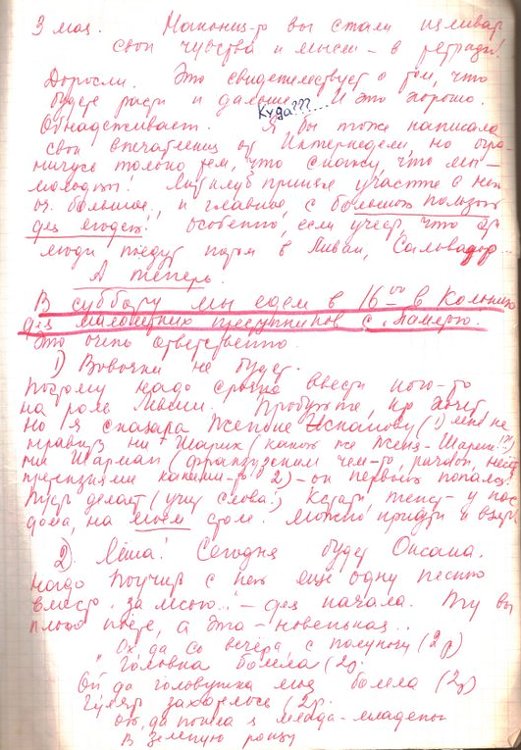 3 мая. Наконец-то вы стали изливать
свои чувства и мысли - в тетради!
Доросли. Это свидетельствует о том, что
будете расти и дальше. И это хорошо.
Куда???...
Обнадёживает. Я бы тоже написала
свои впечатления от Интернедели, но огра-
ничусь только тем, что скажу, что мы -
молодцы! Наш клуб принял участие в ней
оч. большое, и главное, с большой пользой
для людей! Особенно, если учесть, что эти
люди поедут потом в Ливан, Сальвадор...
А теперь.
В субботу мы едем в 16 00 в Колонию
для малолетних преступников с "Памятью".
Это очень ответственно.
1) Вовочки не будет.
Поэтому надо срочно ввести кого-то
на роль Пробуйте, кто хочет
но я сказала Жене Испанову (!) мне не
нравится ни Шарик (какой же Женя - Шарик!?)
ни Шарман (французский чем-то,
претензиями какими-то 2) - он первый попался
Пусть делает (учит слова!) Кстати, текст - у нас
дома, на моём столе. Можно придти и взять
2) Лёша! Сегодня будет Оксана.
Надо поучить с ней ещё одну песню
вместо "За лесою.." - для начала. Ту вы
плохо поёте, а эта - новенькая..
"Ох, да со вечера, с полуночи (2 р)
Головка болела (2р.
Ой да головушка моя болела (2р)
Гулять захотелось (2р.
Ой, да пошла я млада-младенька
В зелёную рощу